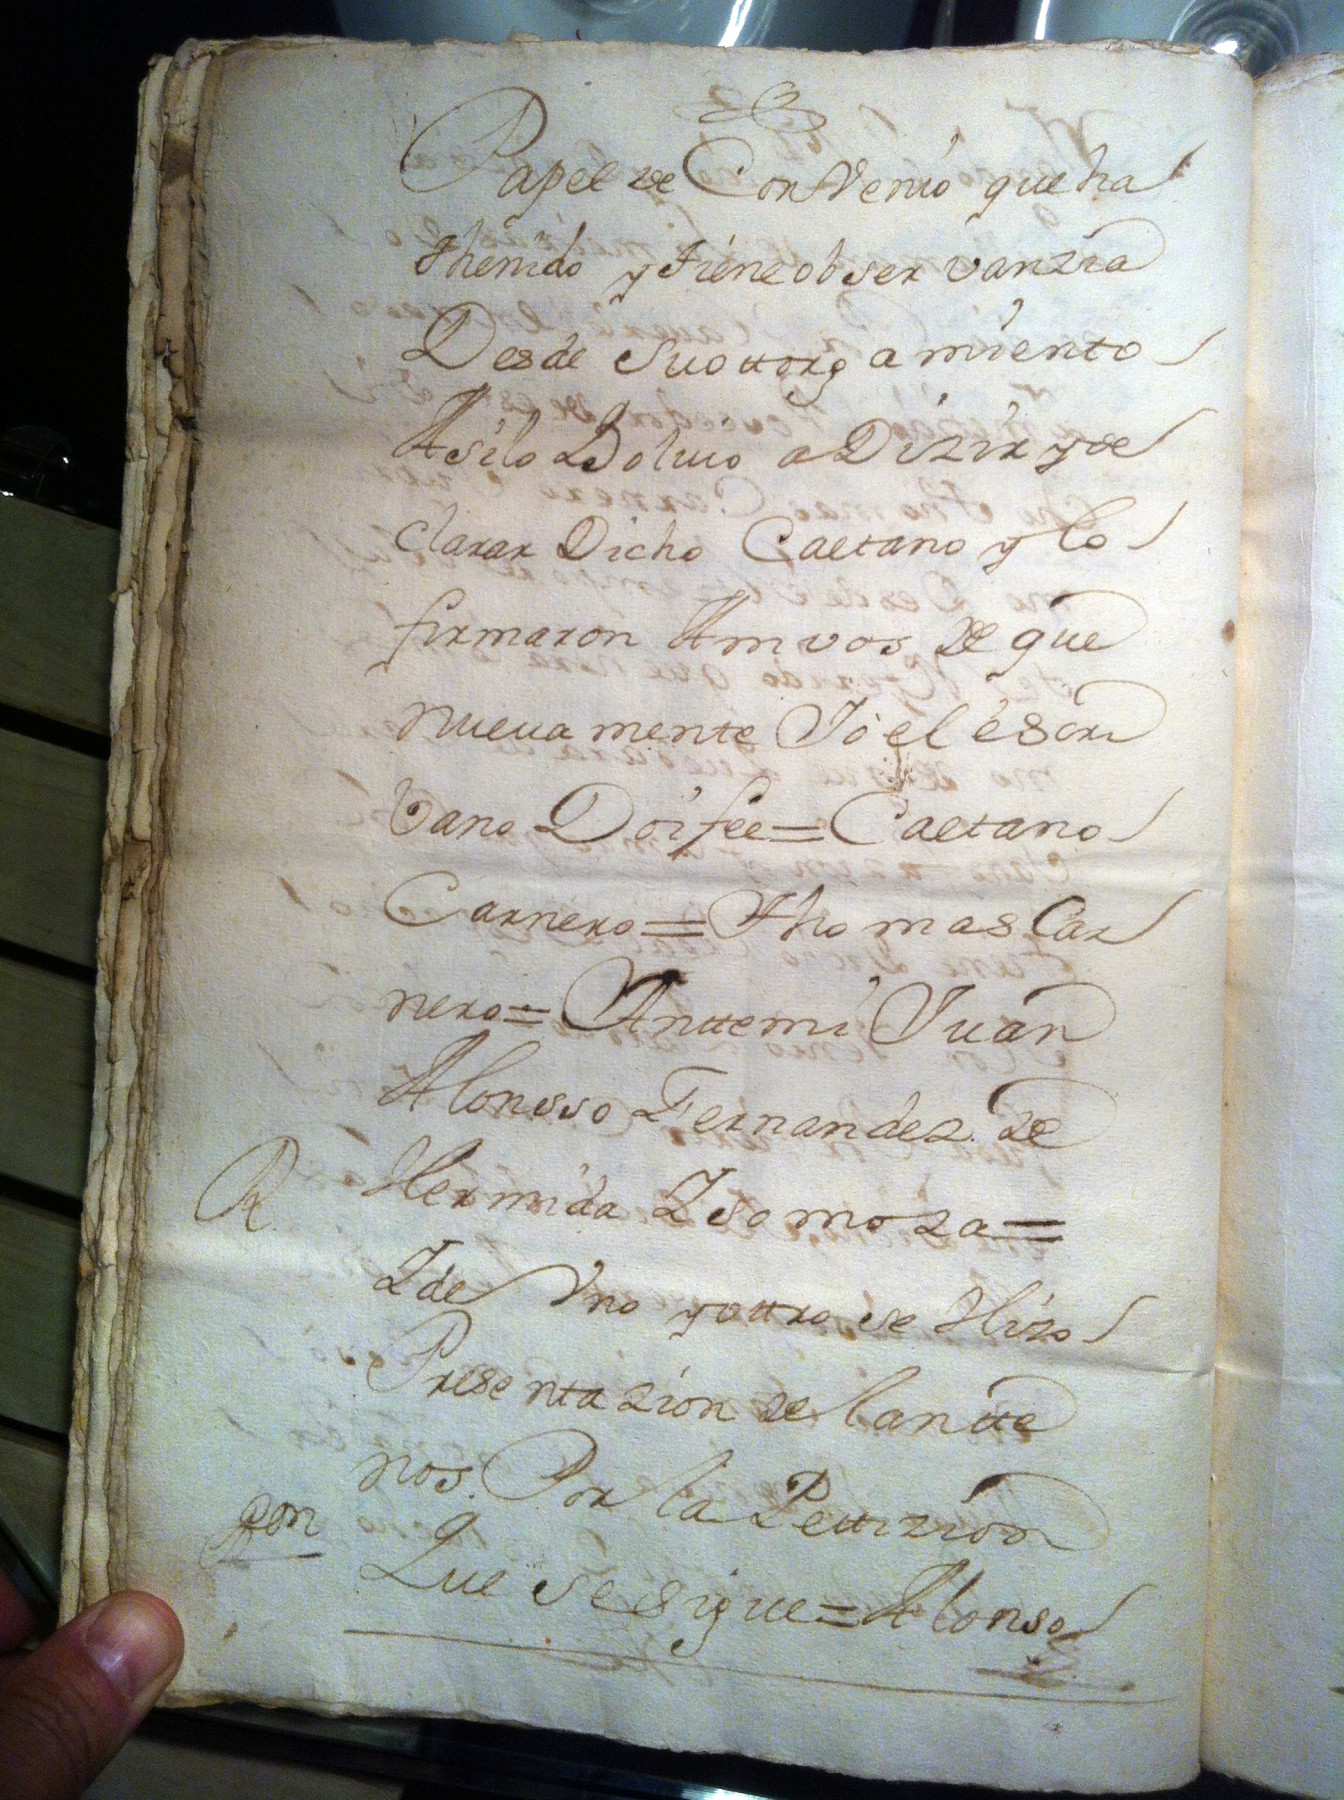 Papel de Combenio que ha
thenido y tiene obserbanzia
Desde su ottorgamiento
Asilo Boluio a Dizir y de
clarar Dicho Caetano y lo
firmaron Amvos de que
nueuamente Yo el escri
vano Doi fee = Caetano
Carnero = Thomas Car
nero = Anttemi Juan
Alonsso Fernandez de
R. Hermida Ysomoza =
Y de Vno y ottro se Hizo
Presentazion de lantte
nos. Por la Pettizion
Que se sigue = Alonso